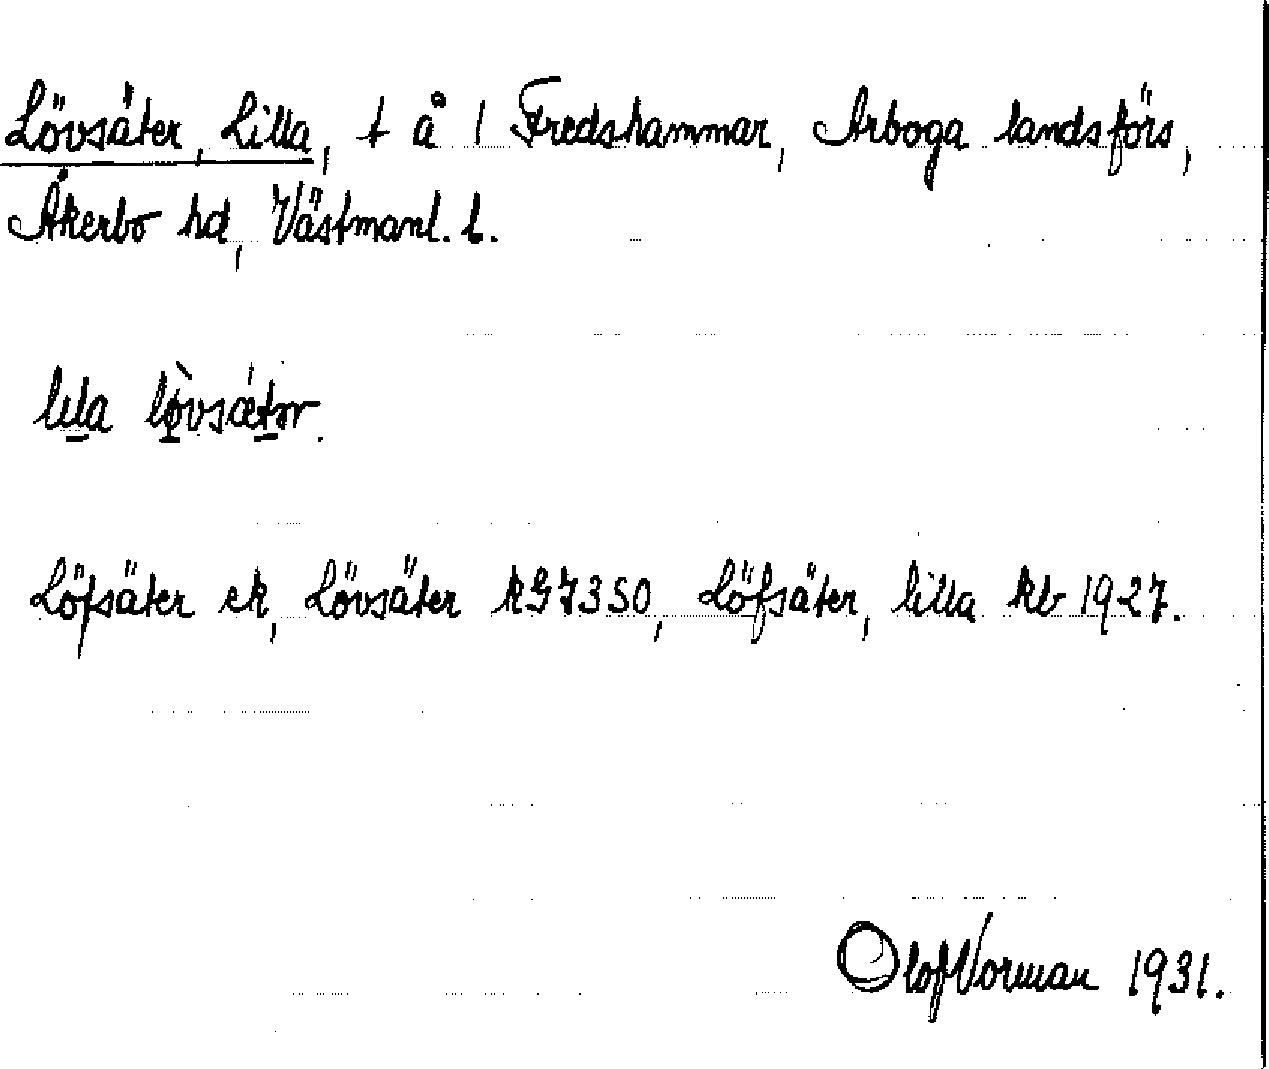 Lövsäter, Lilla, t å 1 Fredshammar, Arboga landsförs,
Åkerbo hd, Västmanl. l.
lila lövsætər.
Löfsäter ek, Lövsäter kG7350, Löfsäter, lilla kb 1927.
Olof Vorman 1931.